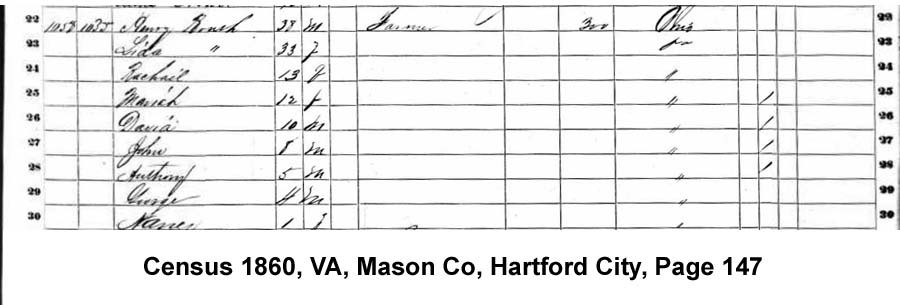 22 1058 1035 Henry Roush 38 m Farmer 300 Ohio 22
23 Lida " 33 f 23
24 Rachail 13 f " 24
25 Mariah 12 f " / 25
26 David 10 m " / 26
27 John 8 m " / 27
28 Anthony 5 m " / 28
29 George 4 m " 29
30 Nancy 1 f 30
Census 1860, VA, Mason Co, Hartford City, Page 147